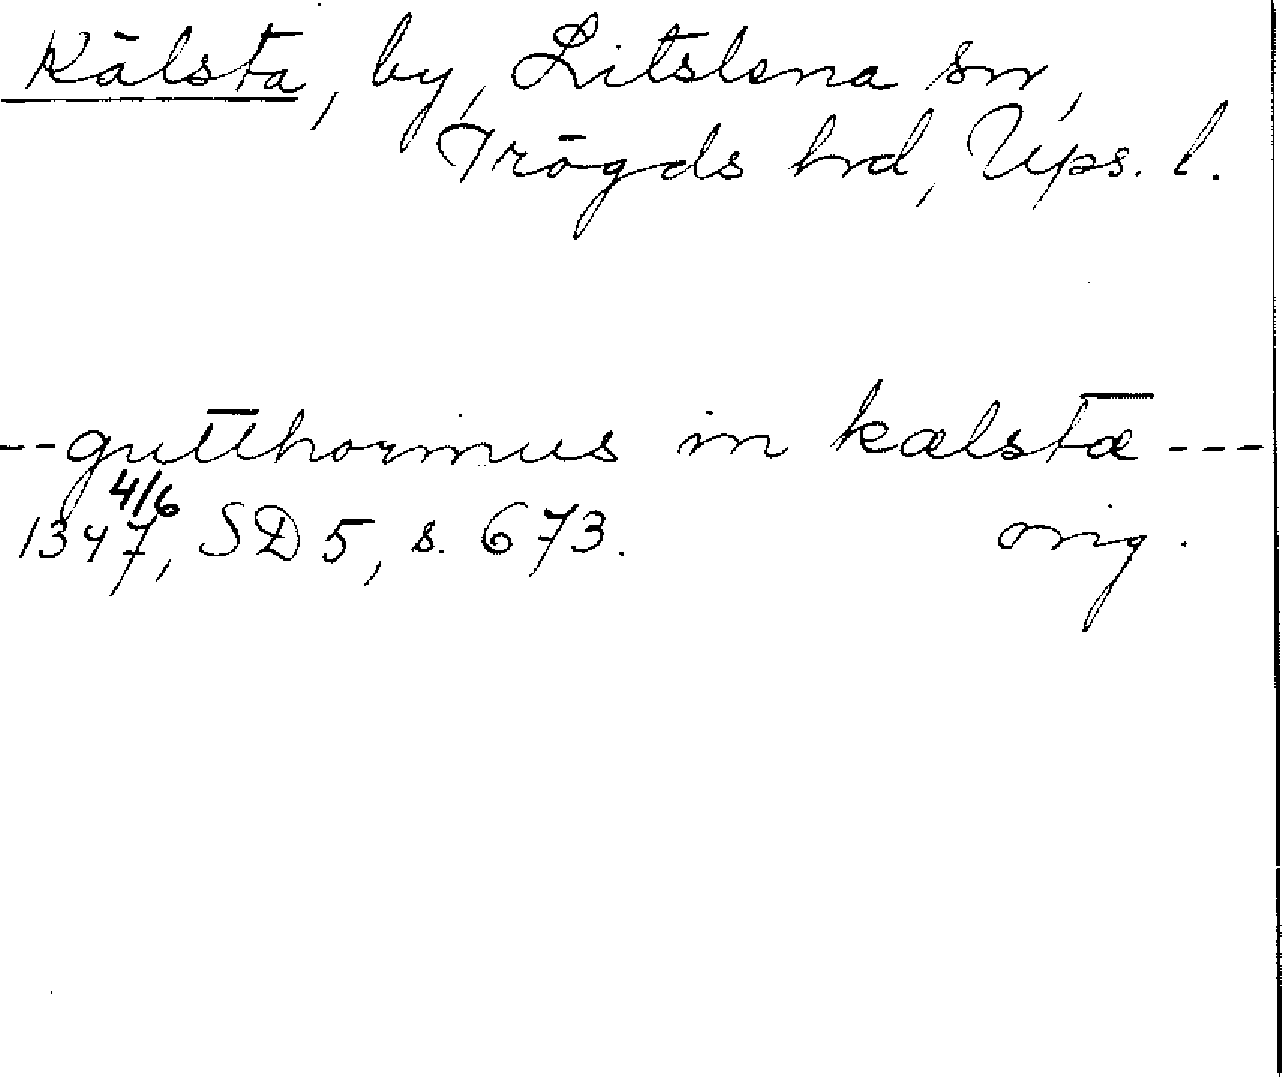 Kälsta, by, Litslena sn,
Trögds hrd, Ups. l.
--gutthormus in kælstæ---
4/6
1347, SD 5, s. 673. orig.